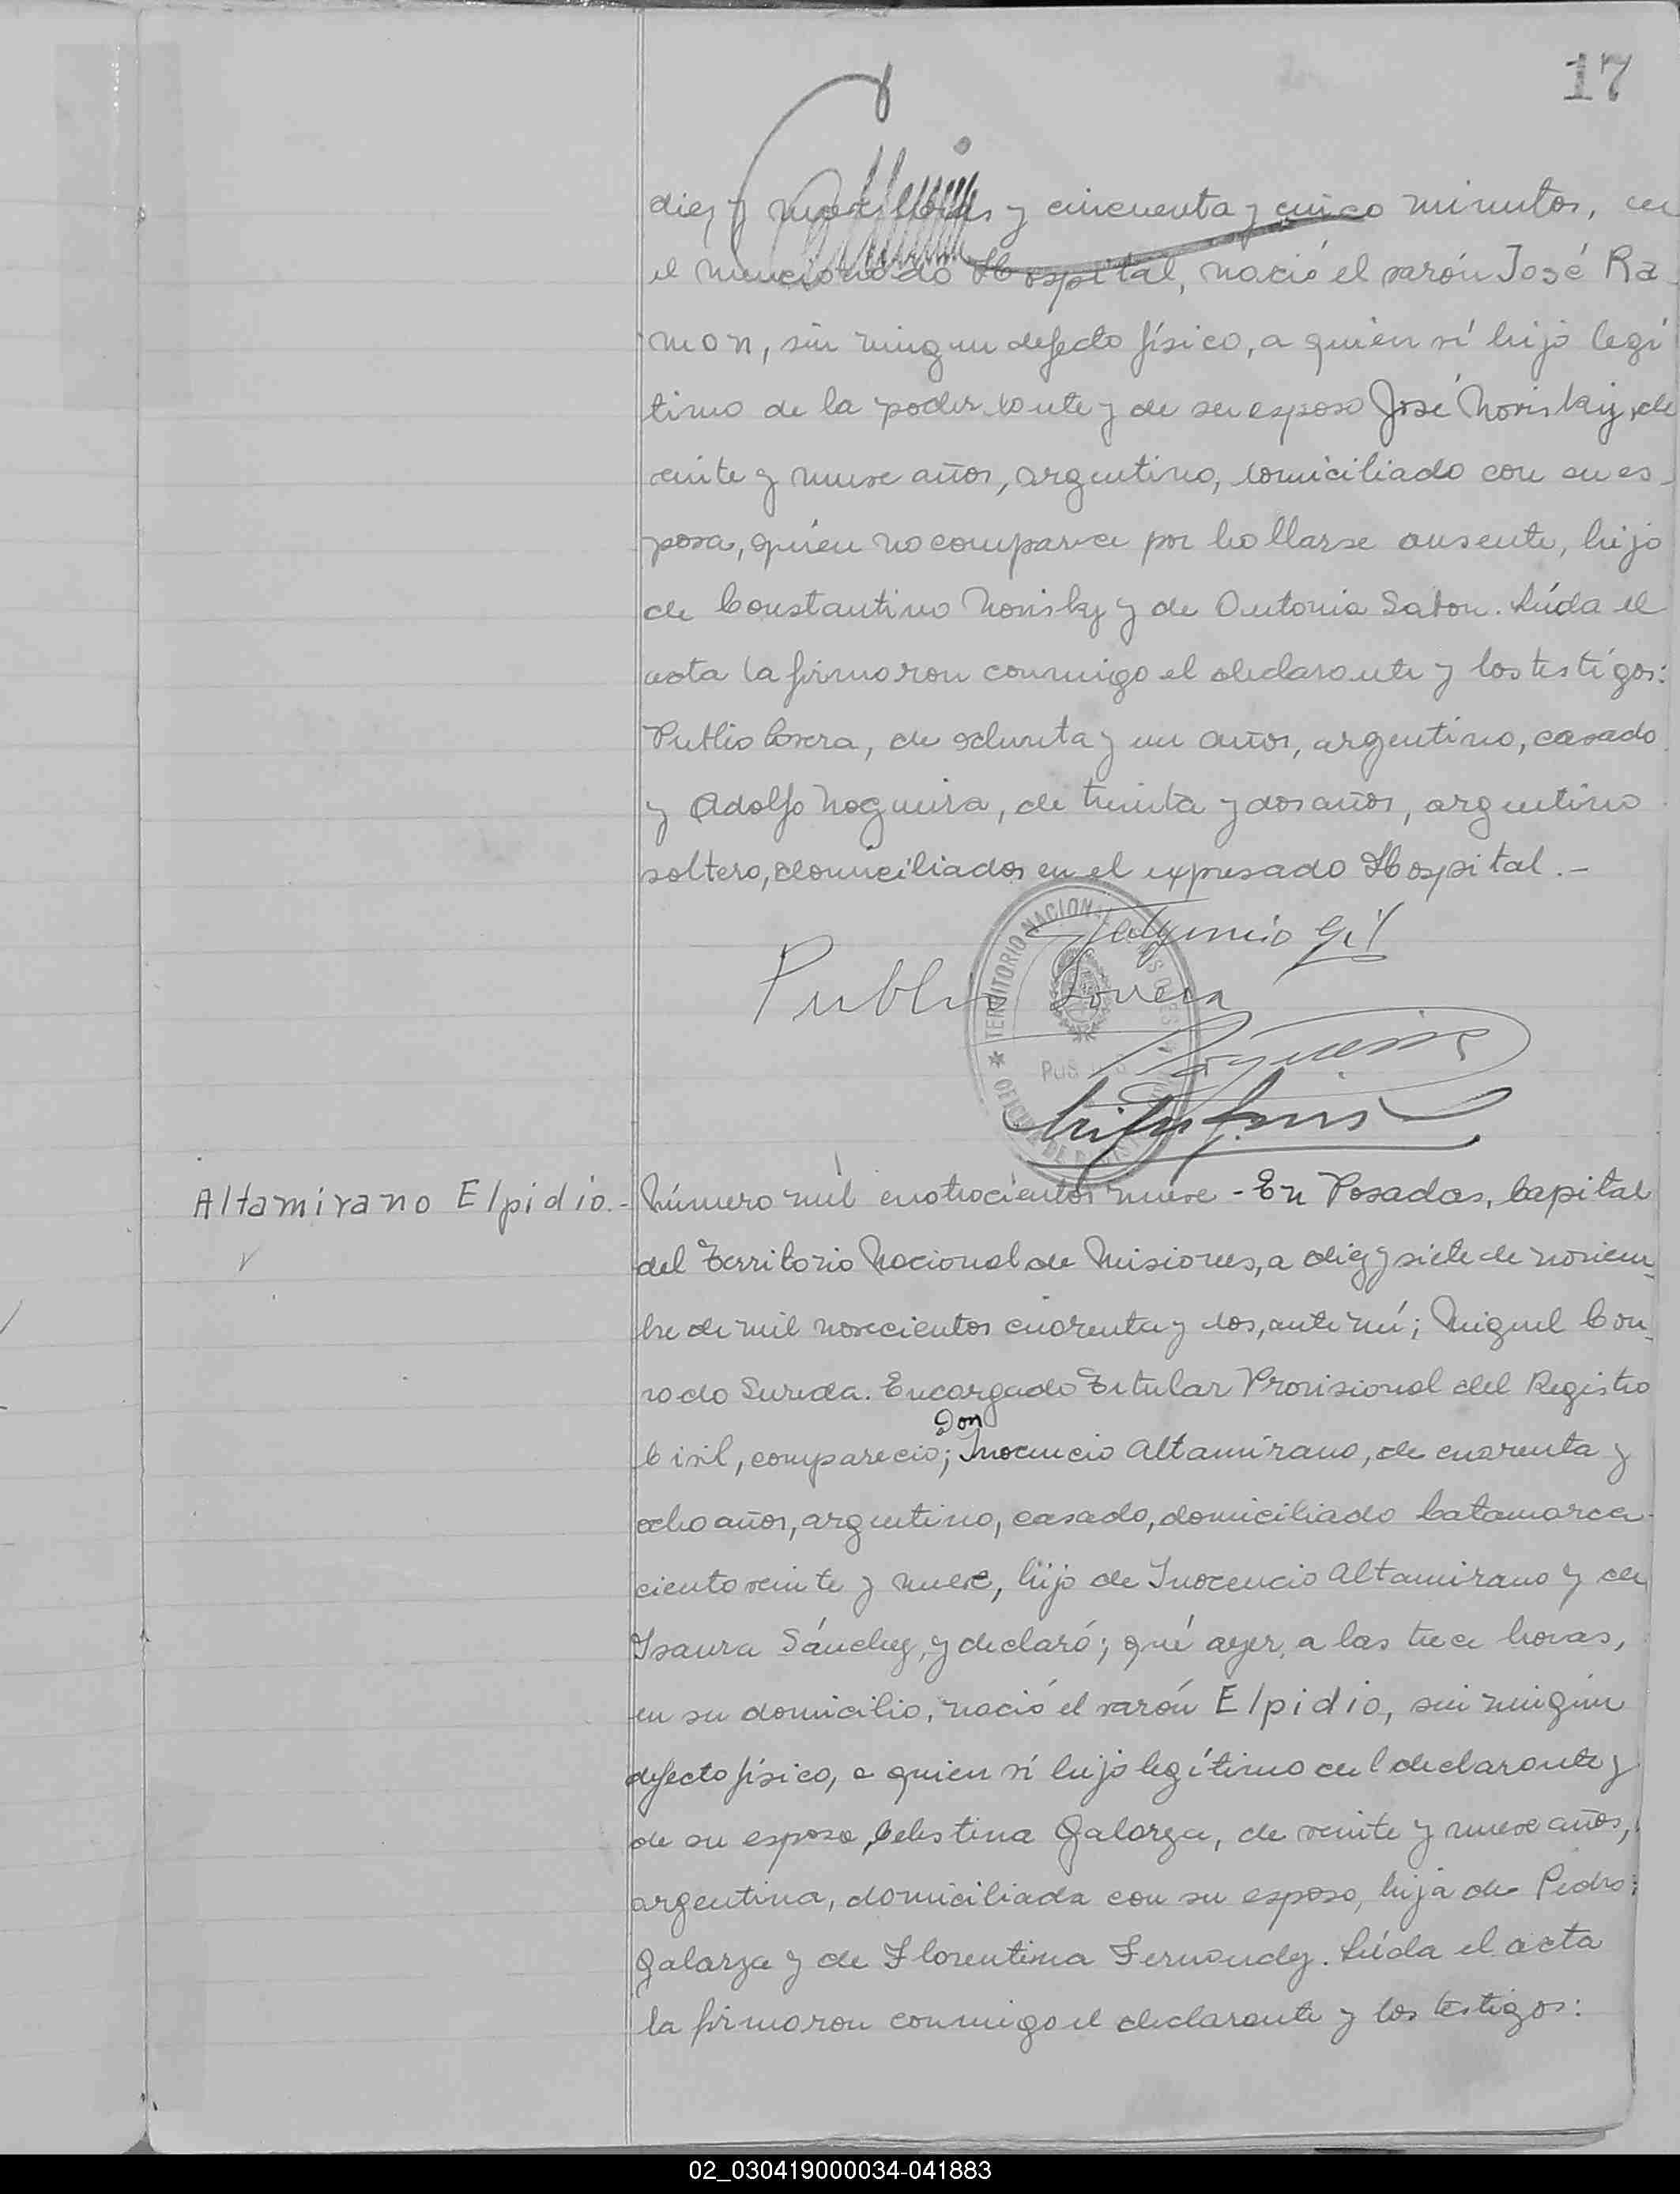 17
diez y nueve horas y cincuenta y cinco minutos, en
el mencionado Hospital, nació el varón José Ra
mon, sin ningun defecto físico, a quien ví hijo legí
timo de la poderdante y de su esposo José Norisky, de
veinte y nueve años, argentino, domiciliado con su es-
posa, quien no comparece por hallarse ausente, hijo
de Constantino Norisky y de Antonia Saton. Leída el
acta la firmaron conmigo el declarante y los testigos:
Publio Lovera, de ochenta y un años, argentino, casado
y Adolfo Nogueira, de treinta y dos años, argentino
soltero, domiciliados en el expresado Hospital.-
Gil
Publio Lovera
TERRITORIO NACIONAL MISIONES
OFICINA DE
Nogueira
Altamirano Elpidio.-
Número mil cuatrocientos nueve - En Posadas, Capital
del Territorio Nacional de Misiones, a diez y siete de noviem-
bre de mil novecientos cuarenta y dos, ante mí; Miguel Con-
rado Sureda. Encargado Titular Provisional del Registro
Don
Civil, compareció; Inocencio Altamirano, de cuarenta y
ocho años, argentino, casado, domiciliado Catamarca
ciento veinte y nueve, hijo de Inocencio Altamirano y de
Isaura Sánchez, y declaró; qué ayer, a las trece horas,
en su domicilio, nació el varón Elpidio, sin ningún
defecto físico, a quien ví hijo legítimo del declarante y
de su esposa, Celestina Galarza, de veinte y nueve años,
argentina, domiciliada con su esposo, hija de Pedro
Galarza y de Florentina Fernandez. Leída el acta
la firmaron conmigo el declarante y los testigos:
02_030419000034-041883